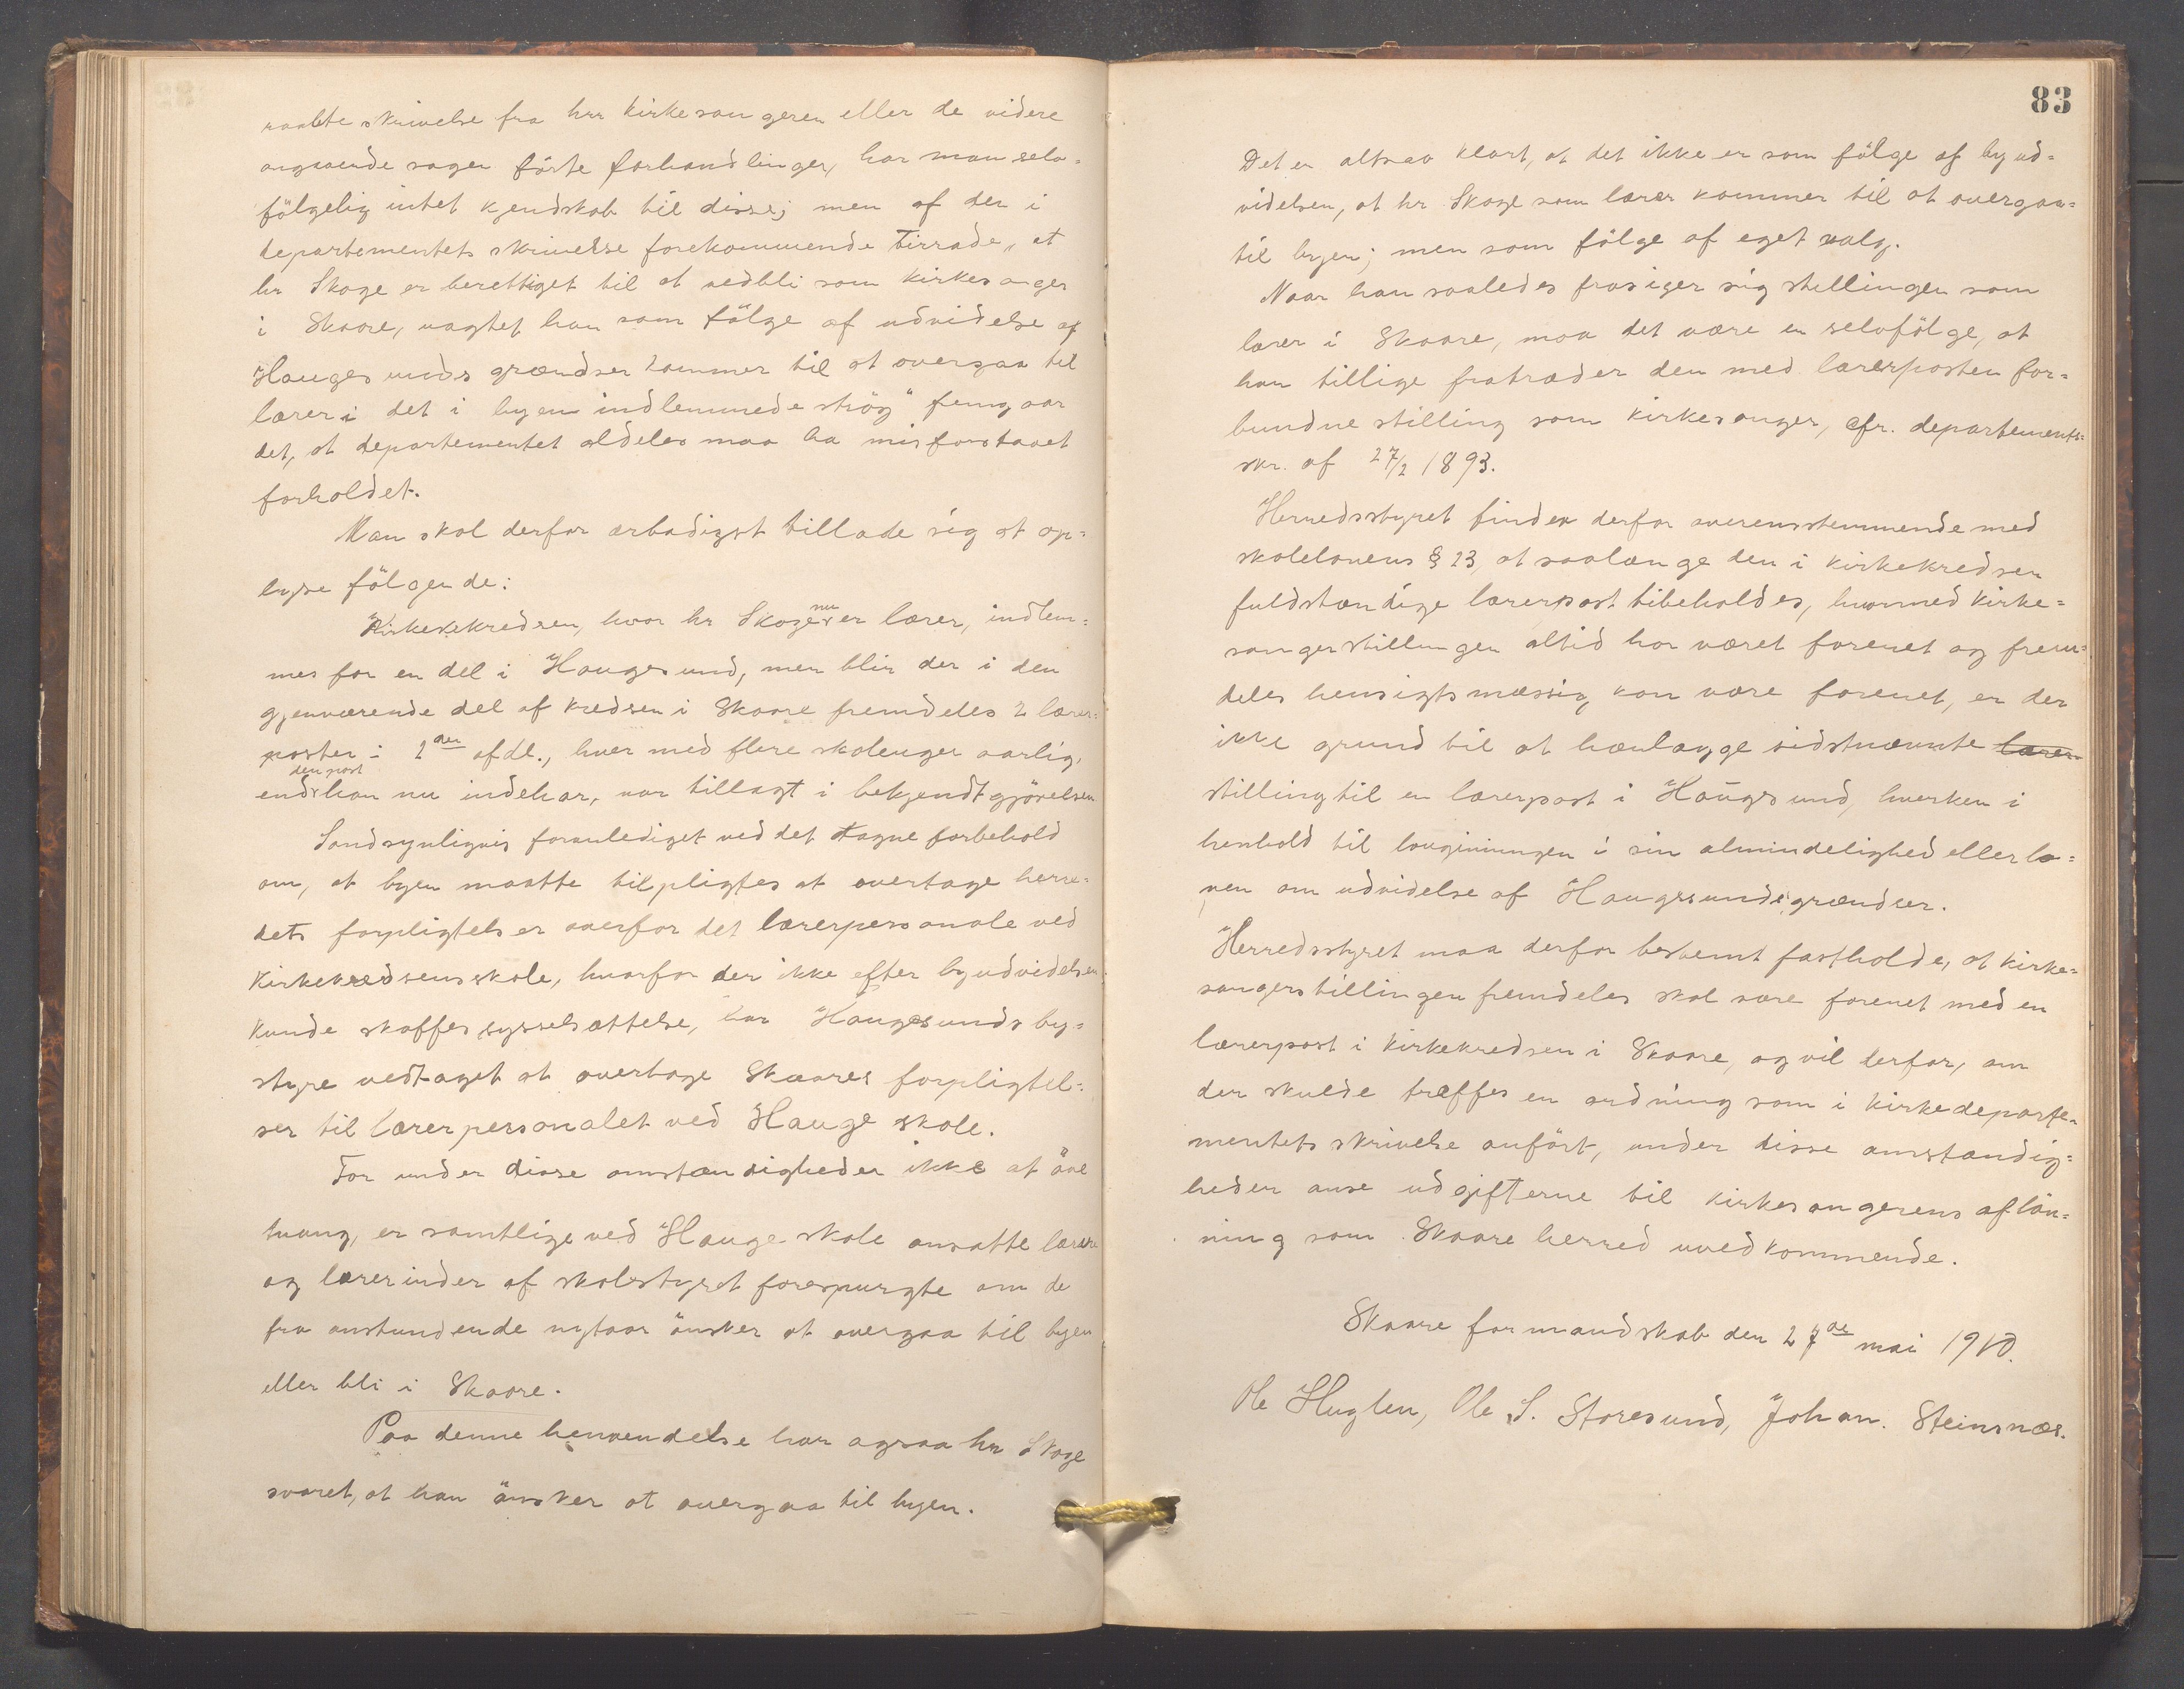 raabte skrivelse fra hrr kirkesangeren eller de videre
angaaende sagen förte forhandlinger, har man selv-
fölgelig intet kjendskab til disse; men af den i
departementets skrivelse forekommende tirrade, at
hr Skoge er berettiget til at vedbli som kirkesanger
i Skaare, uagtet han som fölge af udvidelse af
Haugesunds grændser kommer til at overgaa til
lærer i det i byen indlemmede strög" femgaar
det, at departementet aldeles maa ha misforstaaet
forholdet.
Man skal derfor ærbødigst tillade sig at op-
lyse fölgende:
Kirkekredsen, hvor hr Skoge nu er lærer, indlem-
mes for en del i Haugesund, men blir der i den
gjenværende del af kredsen i Skaare fremdeles 2 lærer-
poster i 2den afdl., hver med flere skoleuger aarlig,
end den post han nu indehar, var tillagt i bekjendtgjörelsen
Sandsynligvis foranlediget ved det tagne forbehold
om, at byen maatte tilpligtes at overtage herre-
dets forpligtelser overfor det lærerpersonale ved
Kirkekredsens skole, hvorfor der ikke efter byudvidelsen
kunde skaffes sysselsættelse, har Haugesunds by-
styre vedtaget at overtage Skaares forpligtel-
ser til lærerpersonalet ved Hauge skole.
For under disse omstændigheder ikke at öve
tvang, er samtlige ved Hauge skole ansatte lærere
og lærerinder af skolestyret forespurgte om de
fra anstundende nytaar önsker at overgaa til byen
eller bli i Skaare.
Paa denne henvendelse har ogsaa hr Skoge
svaret, at han önsker at overgaa til byen.
83
Det er altsaa klart, at det ikke er som fölge af byud-
videlsen, at hr Skoge som lærer kommer til at overgaa-
til byen; men som fölge af eget valg.
Naar han saaledes frasiger sig stillingen som
lærer i Skaare, maa det være en selvfölge, at
han tillige fratræder den med lærerposten for-
bundne stilling som kirkesanger, cfr. departements-
skr. af 27/2 1893.
Herredsstyret finder derfor overensstemmende med
skolelovens § 23, at saalænge den i kirkekredsen
fuldstændige lærerpost tibeholdes, hvormed kirke-
sangerstillingen altid har været forenet og frem-
deles hensigtsmæssig kan være forenet, er der
ikke grund til at henlægge sidstnævnte lærer-
stilling til en lærerpost i Haugesund, hverken i
henhold til lovgivningen i sin almindelighed eller lo-
ven om udvidelse af Haugesunds grændser.
Herredsstyret maa derfor bestemt fastholde, at kirke-
sangerstillingen fremdeles skal være forenet med en
lærerpost i kirkekredsen i Skaare, og vil derfor, om
der skulde træffes en ordning som i kirkedeparte-
mentets skrivelse anfört, under disse omstændig-
heder anse udgifterne til kirkesangerens aflön-
ning som Skaare herred uvedkommende.
Skaare formandskab den 27de mai 1910.
Ole Huglen, Ole S. Storesund, Johan. Steinsnæs.